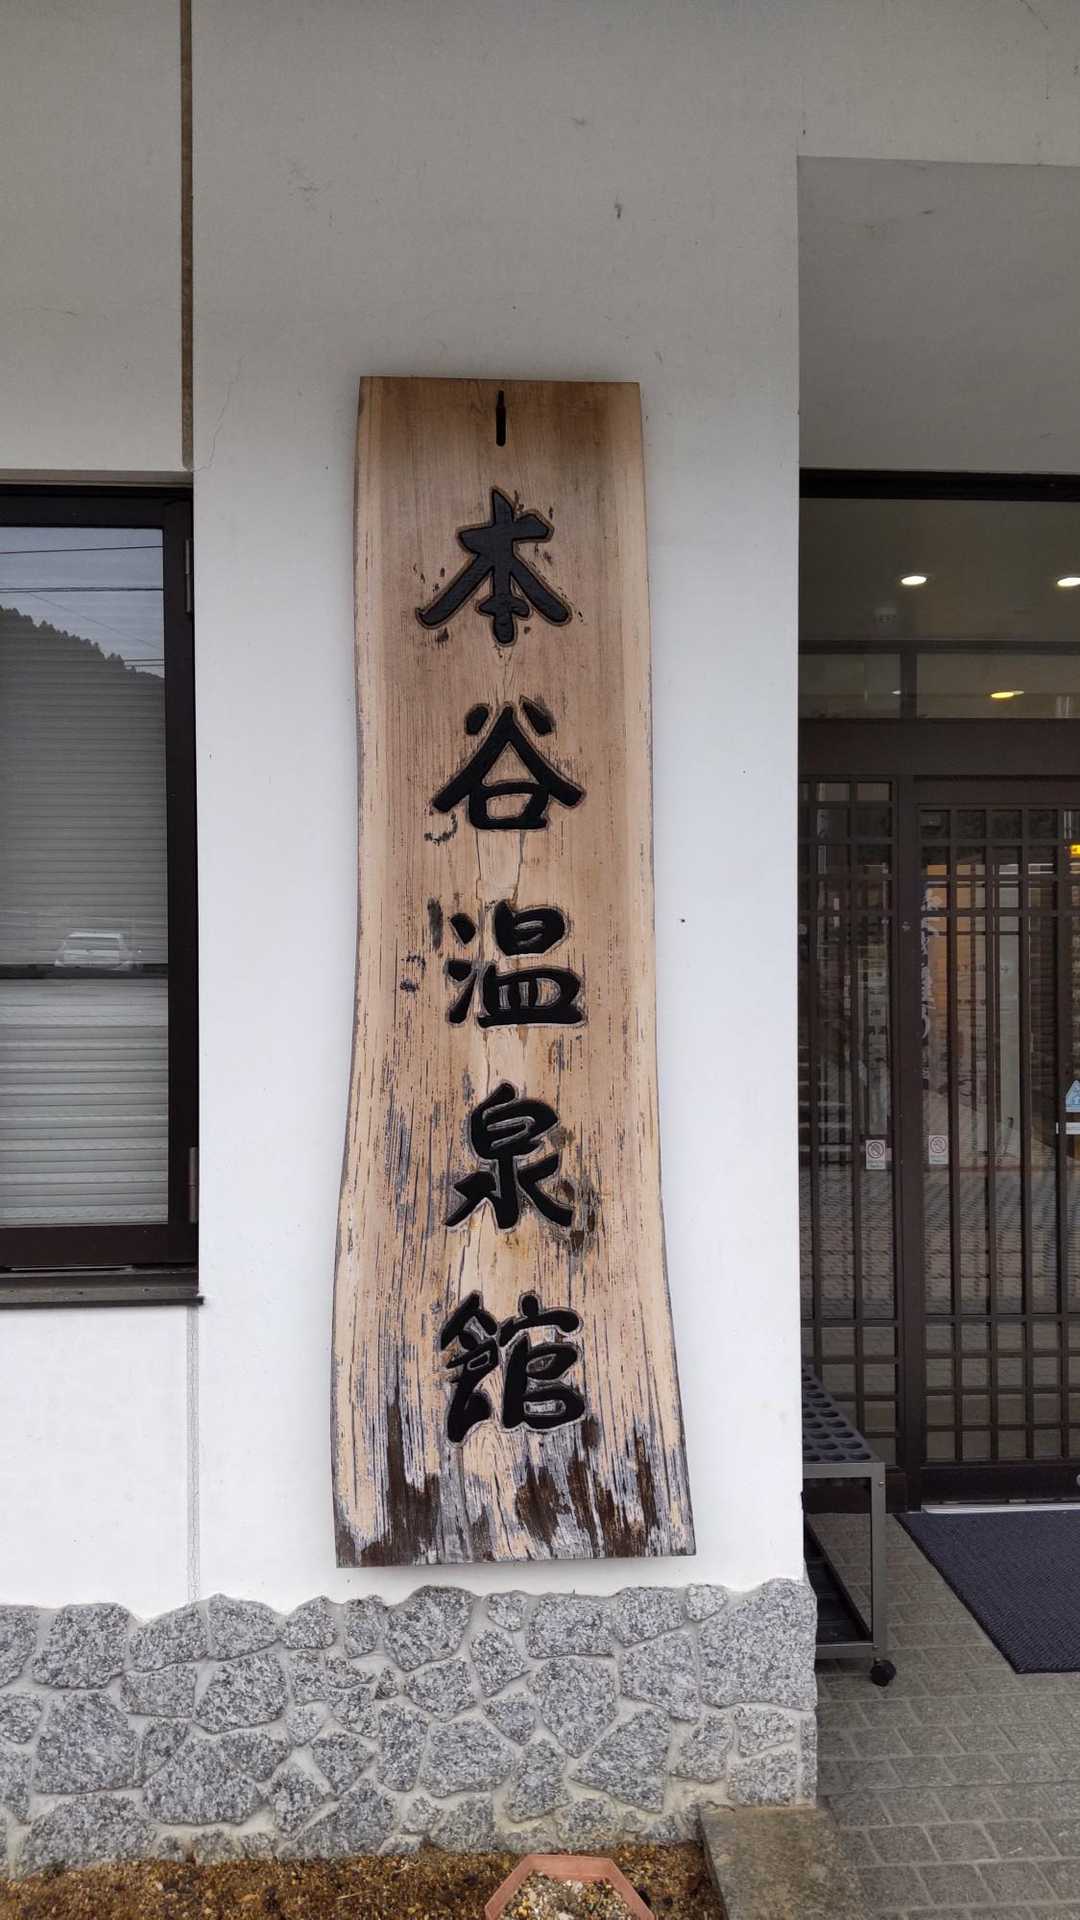 本谷温泉館